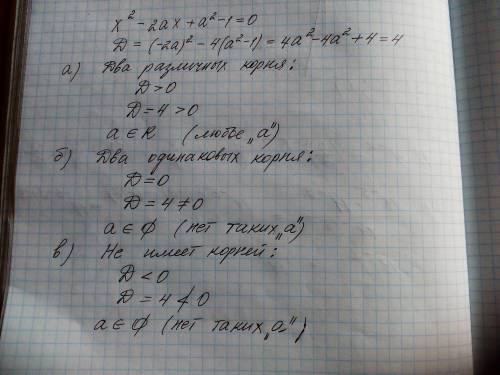 x² - 2ax + a² - 1 = 0
D = (-2a)² - 4(a² - 1) = 4a² - 4a² + 4 = 4
а) Два различных корня:
D > 0
D = 4 > 0
a ∈ R (любые „a")
б) Два одинаковых корня:
D = 0
D = 4 ≠ 0
a ∈ ∅ (нет таких „a")
в) Не имеет корней:
D < 0
D = 4 ≮ 0
a ∈ ∅ (нет таких „a")